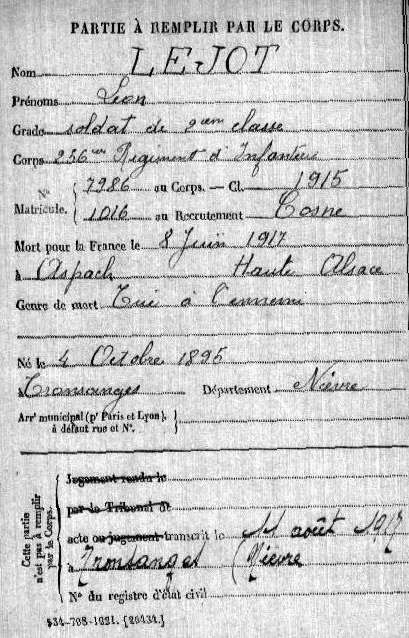 PARTIE À REMPLIR PAR LE CORPS.
Nom LEJOT
Prénoms Léon
Grade soldat de 2eme classe
Corps 256eme Régiment d'Infanterie
N° Matricule. 7986 au Corps. — Cl. 1915
1016 au Recrutement Cosne
Mort pour la France le 8 Juin 1917
à Aspach Haute Alsace
Genre de mort Tué à l'ennemi
Né le 4 Octobre 1895
à Tronsanges Département Nièvre
Arrt municipal (pr Paris et Lyon),
à défaut rue et N°.
Cette partie n'est pas à remplir par le Corps.
Jugement rendu le
par le Tribunal de
acte ou jugement transcrit le 11 août 1917
à Tronsanges (Nièvre
N° du registre d'état civil
534-708-1921. [26434.]